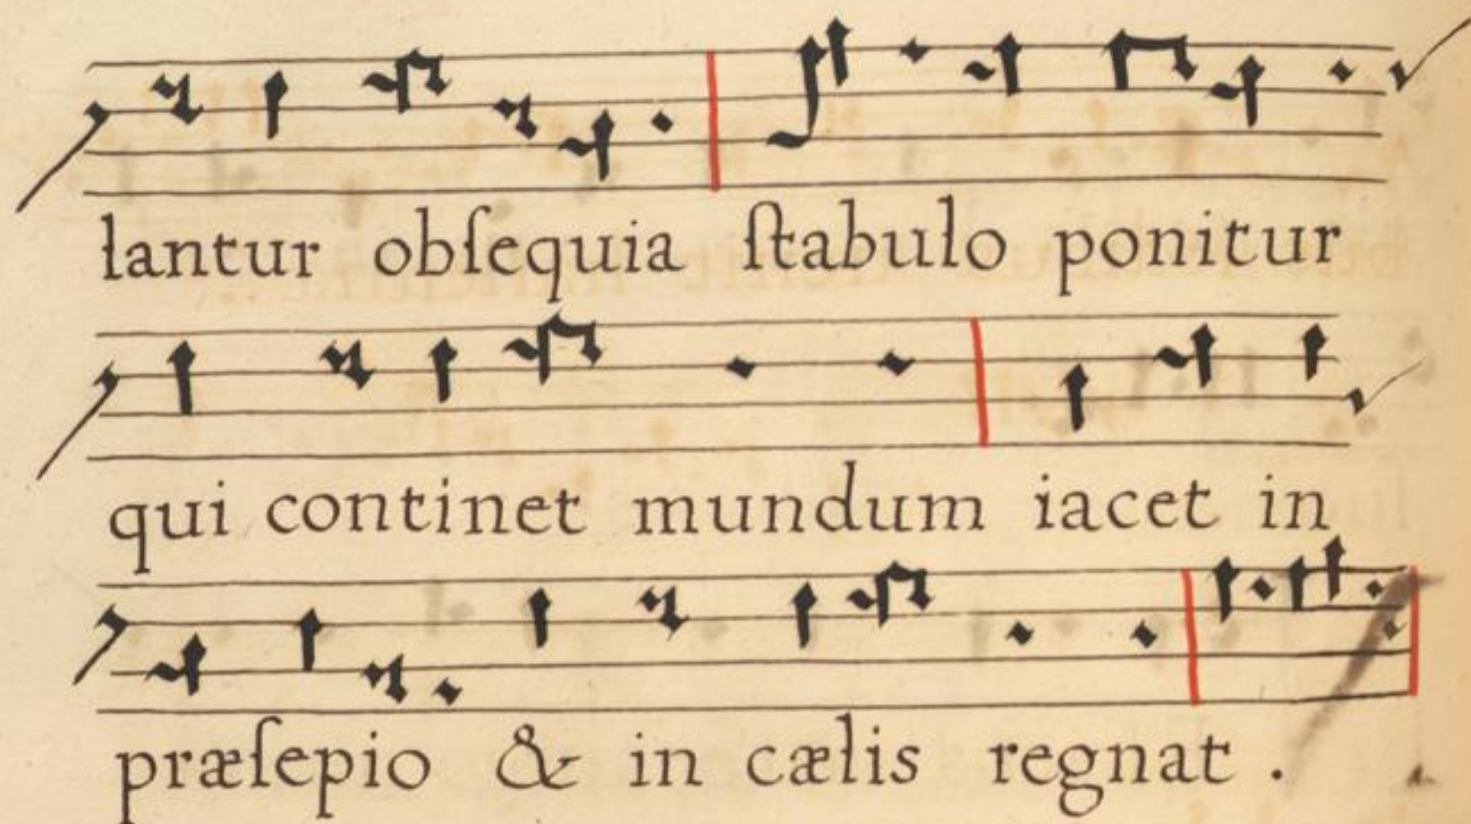 lantur obſequia ſtabulo ponitur
qui continet mundum iacet in
præſepio & in cælis regnat .